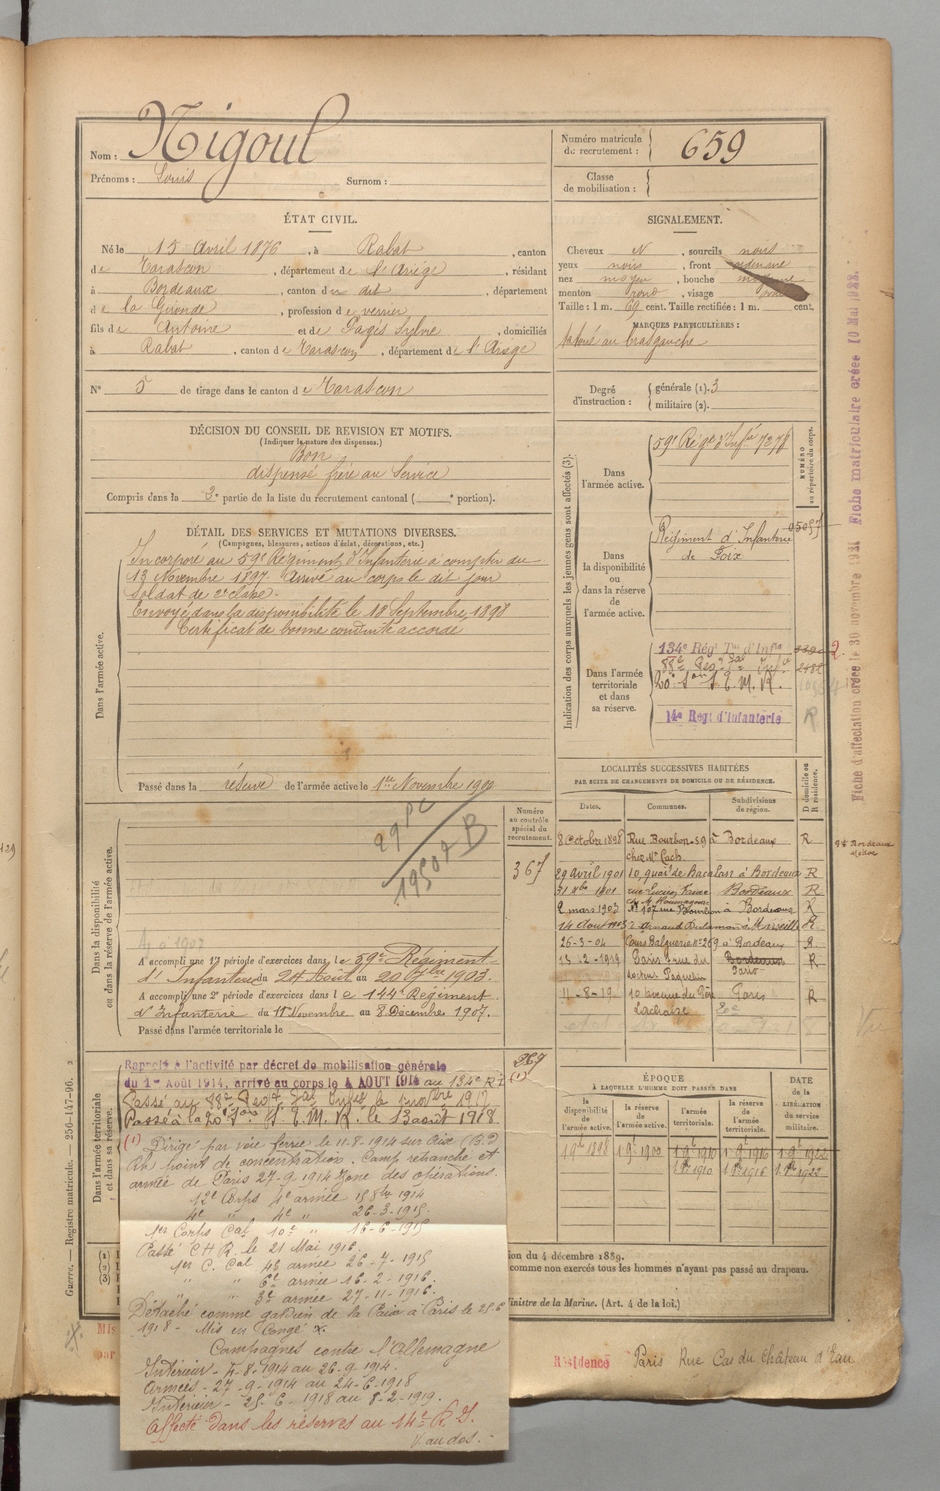 Nom : Nigoul
Prénoms : Louis Surnom :
Numéro matricule du recrutement : 659
Classe de mobilisation :
ÉTAT CIVIL.
Né le 15 Avril 1876, à Rabat, canton
de Tarascon, département de l'Ariège, résidant
à Bordeaux, canton du dit, département
de la Gironde, profession de verrier
fils de Antoine et de Pagès Sylvie, domiciliés
à Rabat, canton de Tarascon, département de l'Ariège
N° 5 de tirage dans le canton de Tarascon
SIGNALEMENT.
Cheveux N, sourcils noirs
yeux noirs, front ordinaire
nez moyen, bouche moyenne
menton rond, visage
Taille : 1 m. 69 cent. Taille rectifiée : 1 m. cent.
MARQUES PARTICULIÈRES :
tatoué au bras gauche
Degré d'instruction : générale (1). 3
militaire (2).
DÉCISION DU CONSEIL DE REVISION ET MOTIFS.
(Indiquer la nature des dispenses.)
Bon
dispensé frère au Service
Compris dans la 2e partie de la liste du recrutement cantonal ( e portion).
DÉTAIL DES SERVICES ET MUTATIONS DIVERSES.
(Campagnes, blessures, actions d'éclat, décorations, etc.)
Dans l'armée active.
Incorporé au 59e Régiment d'Infanterie à compter du
13 Novembre 1897. Arrivé au corps le dit jour
Soldat de 2e classe.
Envoyé dans la disponibilité le 18 Septembre 1898
Certificat de bonne conduite accordé
Passé dans la réserve de l'armée active le 1er Novembre 1900
Indication des corps auxquels les jeunes gens sont affectés (3).
NUMÉRO au répertoire du corps.
Dans l'armée active.
59e Régt d'Infie 7278
Dans la disponibilité ou dans la réserve de l'armée active.
Régiment d'Infanterie
de Foix
Dans l'armée territoriale et dans sa réserve.
134e Régt Tal d'Infie
20e Son S.E.M.R.
14e Regt d'Infanterie R
LOCALITÉS SUCCESSIVES HABITÉES
PAR SUITE DE CHANGEMENTS DE DOMICILE OU DE RÉSIDENCE.
Dates. Communes. Subdivisions de région. D domicile ou R résidence.
8 Octobre 1898 Rue Bourbon 59 à Bordeaux R
29 avril 1901 10, quai de Bacalan à Bordeaux R
31 Xbre 1901 Bordeaux R
2 mars 1903 N° 107 rue Bourbon à Bordeaux R
14 Août 1903 à Marseille R
26-3-04 Cours Balguerie n° 269 à Bordeaux R
15-2-1919 Paris rue du Bordeaux R
Paris
11-8-19 10 avenue du Père Paris R
Lachaise
Numéro au contrôle spécial du recrutement.
367
29 PC
19507 B
Dans la disponibilité ou dans la réserve de l'armée active.
A accompli une 1e période d'exercices dans le 59e Régiment
d'Infanterie du 24 Août au 20 7bre 1903.
A accompli une 2e période d'exercices dans le 144e Régiment
d'Infanterie du 11 Novembre au 8 Décembre 1907.
Passé dans l'armée territoriale le
Dans l'armée territoriale et dans sa réserve.
269
(1)
Rappelé à l'activité par décret de mobilisation générale
du 1er Août 1914, arrivé au corps le 4 AOUT 1914 au 134e RT
Passé à la 20e Son S.E.M.R. le 13 août 1918
(1) Dirigé par voie ferrée le 11.8.1914 sur
point de concentration. Camp retranché et
armée de Paris 27-9-1914 Zone des opérations.
12e Corps 4e armée 1914
4e " 4e " 26-3-1915.
1er Corps Cal 10e " 16-6-1915
Passé C H R. le 21 Mai 1916.
1er C. Cal armée 26-7-1915
" " 6e armée 16-2-1916.
" " 3e armée 27-11-1916.
Détaché comme gardien de la Paix à Paris le 25.6
1918 - Mis en Congé
Campagnes contre l'Allemagne
Intérieur - 4-8-1914 au 26-9-1914.
Armées - 27-9-1914 au 24-6-1918
Intérieur - 25-6-1918 au 8-2-1919.
Affecté dans les réserves au 14e R.I.
V. au dos.
ÉPOQUE
À LAQUELLE L'HOMME DOIT PASSER DANS
DATE DE LA LIBÉRATION du service militaire.
la disponibilité de l'armée active. la réserve de l'armée active. l'armée territoriale. la réserve de l'armée territoriale.
1 9bre 1898 1 9bre 1900 1 9bre 1910 1 9bre 1916 1 9bre 1922
1 8bre 1910 1 8bre 1916 1 8bre 1922
(1)
(2)
(3)
ion du 4 décembre 1889.
comme non exercés tous les hommes n'ayant pas passé au drapeau.
Ministre de la Marine. (Art. 4 de la loi.)
Résidence Paris Rue Cas du Château d'Eau
Guerre. — Registre matricule. — 256-147-96.
Fiche d'affectation créée le 30 novembre 1931 Fiche matriculaire créée 10 Mai 1933.